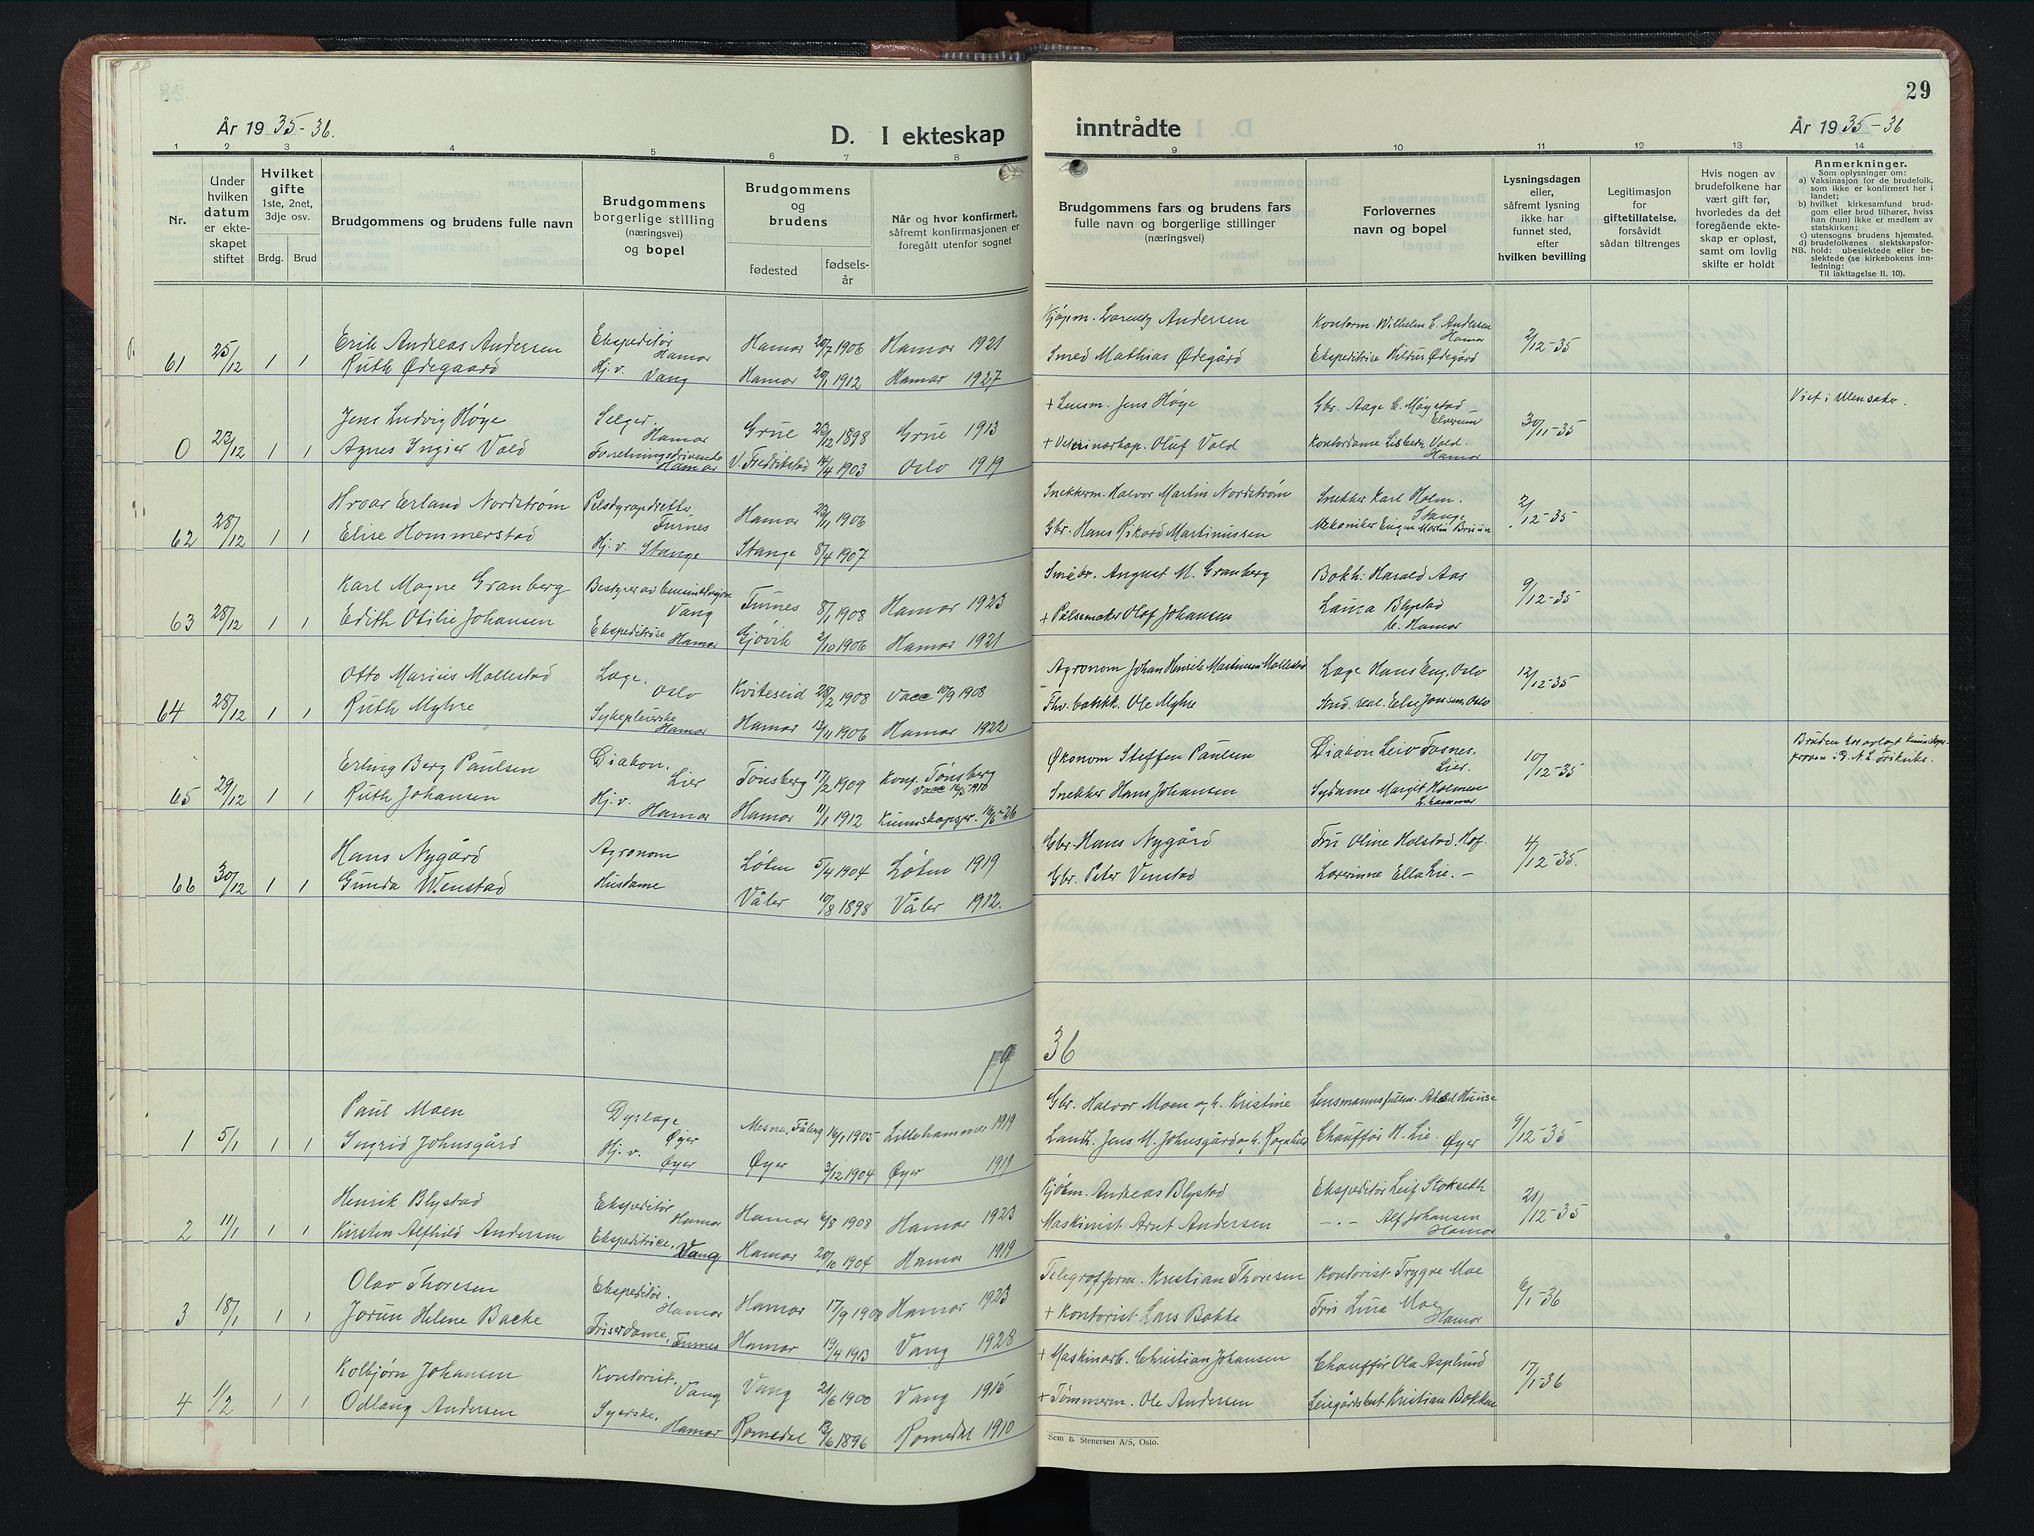 29
År 1935-36.
D. I ekteskap
inntrådte
År 1935-36
1 2 3 4 5 6 7 8 9 10 11 12 13 14
Nr.
Under hvilken datum er ekteskapet stiftet
Hvilket gifte 1ste, 2net, 3dje osv.
Brdg. Brud
Brudgommens og brudens fulle navn
Brudgommens borgerlige stilling (næringsvei) og bopel
Brudgommens og brudens
fødested
fødsels-år
Når og hvor konfirmert, såfremt konfirmasjonen er foregått utenfor sognet
Brudgommens fars og brudens fars fulle navn og borgerlige stillinger (næringsvei)
Forlovernes navn og bopel
Lysningsdagen eller, såfremt lysning ikke har funnet sted, efter hvilken bevilling
Legitimasjon for giftetillatelse, forsåvidt sådan tiltrenges
Hvis nogen av brudefolkene har vært gift før, hvorledes da det foregående ekteskap er opløst, samt om lovlig skifte er holdt
Anmerkninger.
Som oplysninger om:
a) Vaksinasjon for de brudefolk, som ikke er konfirmert her i landet;
b) hvilket kirkesamfund brudgom eller brud tilhører, hviss han (hun) ikke er medlem av statskirken;
c) utensogns brudens hjemsted.
d) brudefolkenes slektskapsforhold: ubeslektede eller beslektede (se kirkebokens innledning:
NB. Til iakttagelse II. 10).
61 25/12 1 1 Erik Andreas Andersen Ekspeditør Hamar Hamar 20/7 1906 Hamar 1921 Kjøpm. Andersen Kontorm. Wilhelm C. Andersen Hamar 2/12-35
Ruth Ødegaard Hj. v. Vang Hamar 20/1 1912 Hamar 1927 Smed Mathias Ødegård Ekspeditrise Hildur Ødegård
0 23/12 1 1 Jens Ludvig Høye Selger. Hamar Grue 1898 Grue 1913 + Lensm. Jens Høye Gbr. Aage C. Møystad Elverum 30/11-35 Viet i Ullensaker.
Agnes Ingier Vold Forretningsdrivende Hamar V. Fredrikstad 14/4 1903 Oslo 1919 + Veterinærkap. Oluf Vold Kontordame Lisbeth Vold. Hamar
62 28/12 1 1 Hroar Erland Nordstrøm Pelsdyropdretter Furnes Hamar 23/11 1906 Snekkerm. Halvor Martin Nordstrøm Snekker Karl Holm. Stange 2/12-35
Elise Hommerstad Hj. v. Stange Stange 8/4 1907 Gbr. Hans Rikard Martinussen Mekaniker Eugen Martin Bruun
63 28/12 1 1 Karl Magne Granberg Bestyrer av Vang Furnes 8/1 1908 Hamar 1923 August M. Granberg Bokh: Harald Aas 9/12-35
Edith Otilie Johansen Ekspeditrise Hamar Gjøvik 2/10 1906 Hamar 1921 + Pølsemaker Olaf Johansen Laura Blystad b. Hamar
64 28/12 1 1 Otto Marius Mollestad Læge. Oslo Kviteseid 28/2 1908 Vacc 10/9 1908 Agronom Johan Henrik Martinsen Mollestad Læge Hans Eng. Oslo 12/12-35
Ruth Myhre Sykepleierske Hamar Hamar 13/11 1906 Hamar 1922 Fhv. bankk. Ole Myhre Stud. real. Else Jonsen, Oslo
65 29/12 1 1 Erling Berg Paulsen Diakon. Lier Tønsberg 17/2 1909 Konf. Tønsberg Vacc 16/5 1910 Økonom Steffen Paulsen Diakon Leiv Fosnes. Lier. 10/12-35 Bruden har avlagt kunnskapsprøven i R. A. L. Frikirke.
Ruth Johansen Hj. v. Hamar Hamar 11/1 1912 Kunnskapspr. 16/5-26 Snekker Hans Johansen Sydame Margit Holmen L.hammer
66 30/12 1 1 Hans Nygård Agronom Løten 5/4 1904 Løten 1919 Gbr. Hans Nygård Fru Oline Holstad. Hof. 4/12-35.
Gunda Wenstad Husdame Våler 10/8 1898 Våler 1912. Gbr. Peter Venstad Lærerinne Ella Lie. -
19 36
1 5/1 1 1 Paul Moen Dyrlæge Øyer Mesna, Fåberg 16/1 1905 Lillehammer 1919 Gbr. Halvor Moen og h. Kristine Lensmannsfullm. Aksel Huuse 9/12-35
Ingrid Johnsgård Hj. v. Øyer Øyer 3/12 1904 Øyer 1919 Landh. Jens M. Johnsgård og h. Ragnhild Chauffør H. Lie. Øyer
2 11/1 1 1 Henrik Blystad Ekspeditør Hamar Hamar 6/8 1908 Hamar 1923 Kjøbm. Andreas Blystad Ekspeditør Leif Stokseth 21/12-35
Kirsten Alfhild Andersen Ekspeditrice. Vang Hamar 20/10 1904 Hamar 1919 Maskinist Arnt Andersen -.- Alf Johansen Hamar
3 18/1 1 1 Olav Thoresen Ekspeditør. Hamar Hamar 17/9 1908 Hamar 1923 Telegrafform. Kristian Thoresen Kontorist Trygve Moe 6/1-36
Jorun Helene Bakke Friserdame, Furnes Hamar 19/4 1913 Vang 1928 + Kontorist Lars Bakke Fru Lina Moe Hamar
4 1/2 1 1 Kolbjørn Johansen Kontorist. Vang Vang 21/6 1900 Vang 1915 + Maskinarb. Christian Johansen Chauffør Ola Asplund 17/1-36
Odlaug Andersen Syerske. Hamar Romedal 13/6 1896 Romedal 1910 + Tømmerm. Ole Andersen Leiegårdsbest Kristian Bakken
Sem & Stenersen A/S, Oslo.